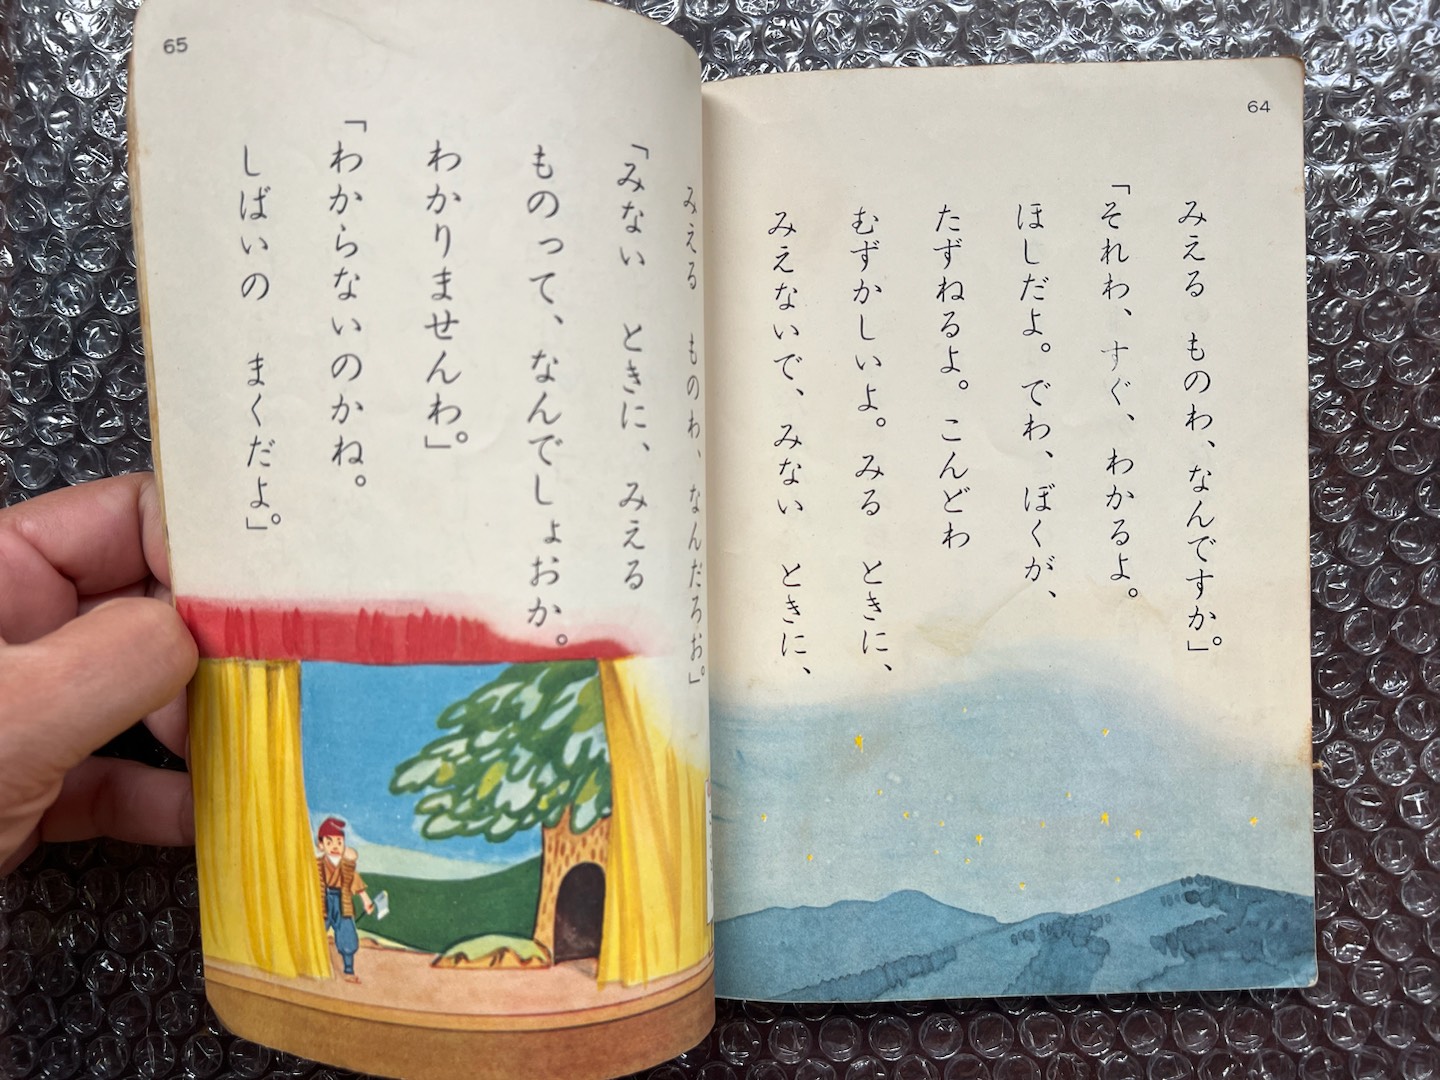 64
みえる ものわ、なんですか」。
「それわ、すぐ、わかるよ。
ほしだよ。でわ、ぼくが、
たずねるよ。こんどわ
むずかしいよ。みる ときに、
みえないで、みない ときに、
65
みえる ものわ、なんだろお。」
「みない ときに、みえる
ものって、なんでしょおか。
わかりませんわ。」
「わからないのかね。
しばいの まくだよ。」